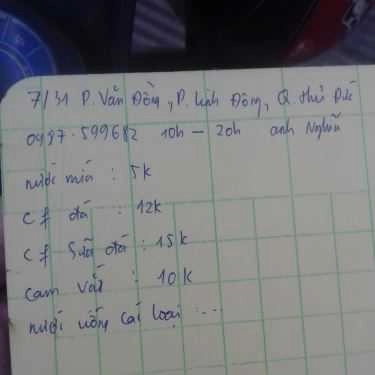 7/31 P. Văn Đồng, P. Linh Đông, Q. Thủ Đức
0497.599682 10h - 20h anh Nghĩa
nước mía : 5k
cf đá : 12k
cf sữa đá : 15k
cam vắt : 10k
nước uống các loại : ...